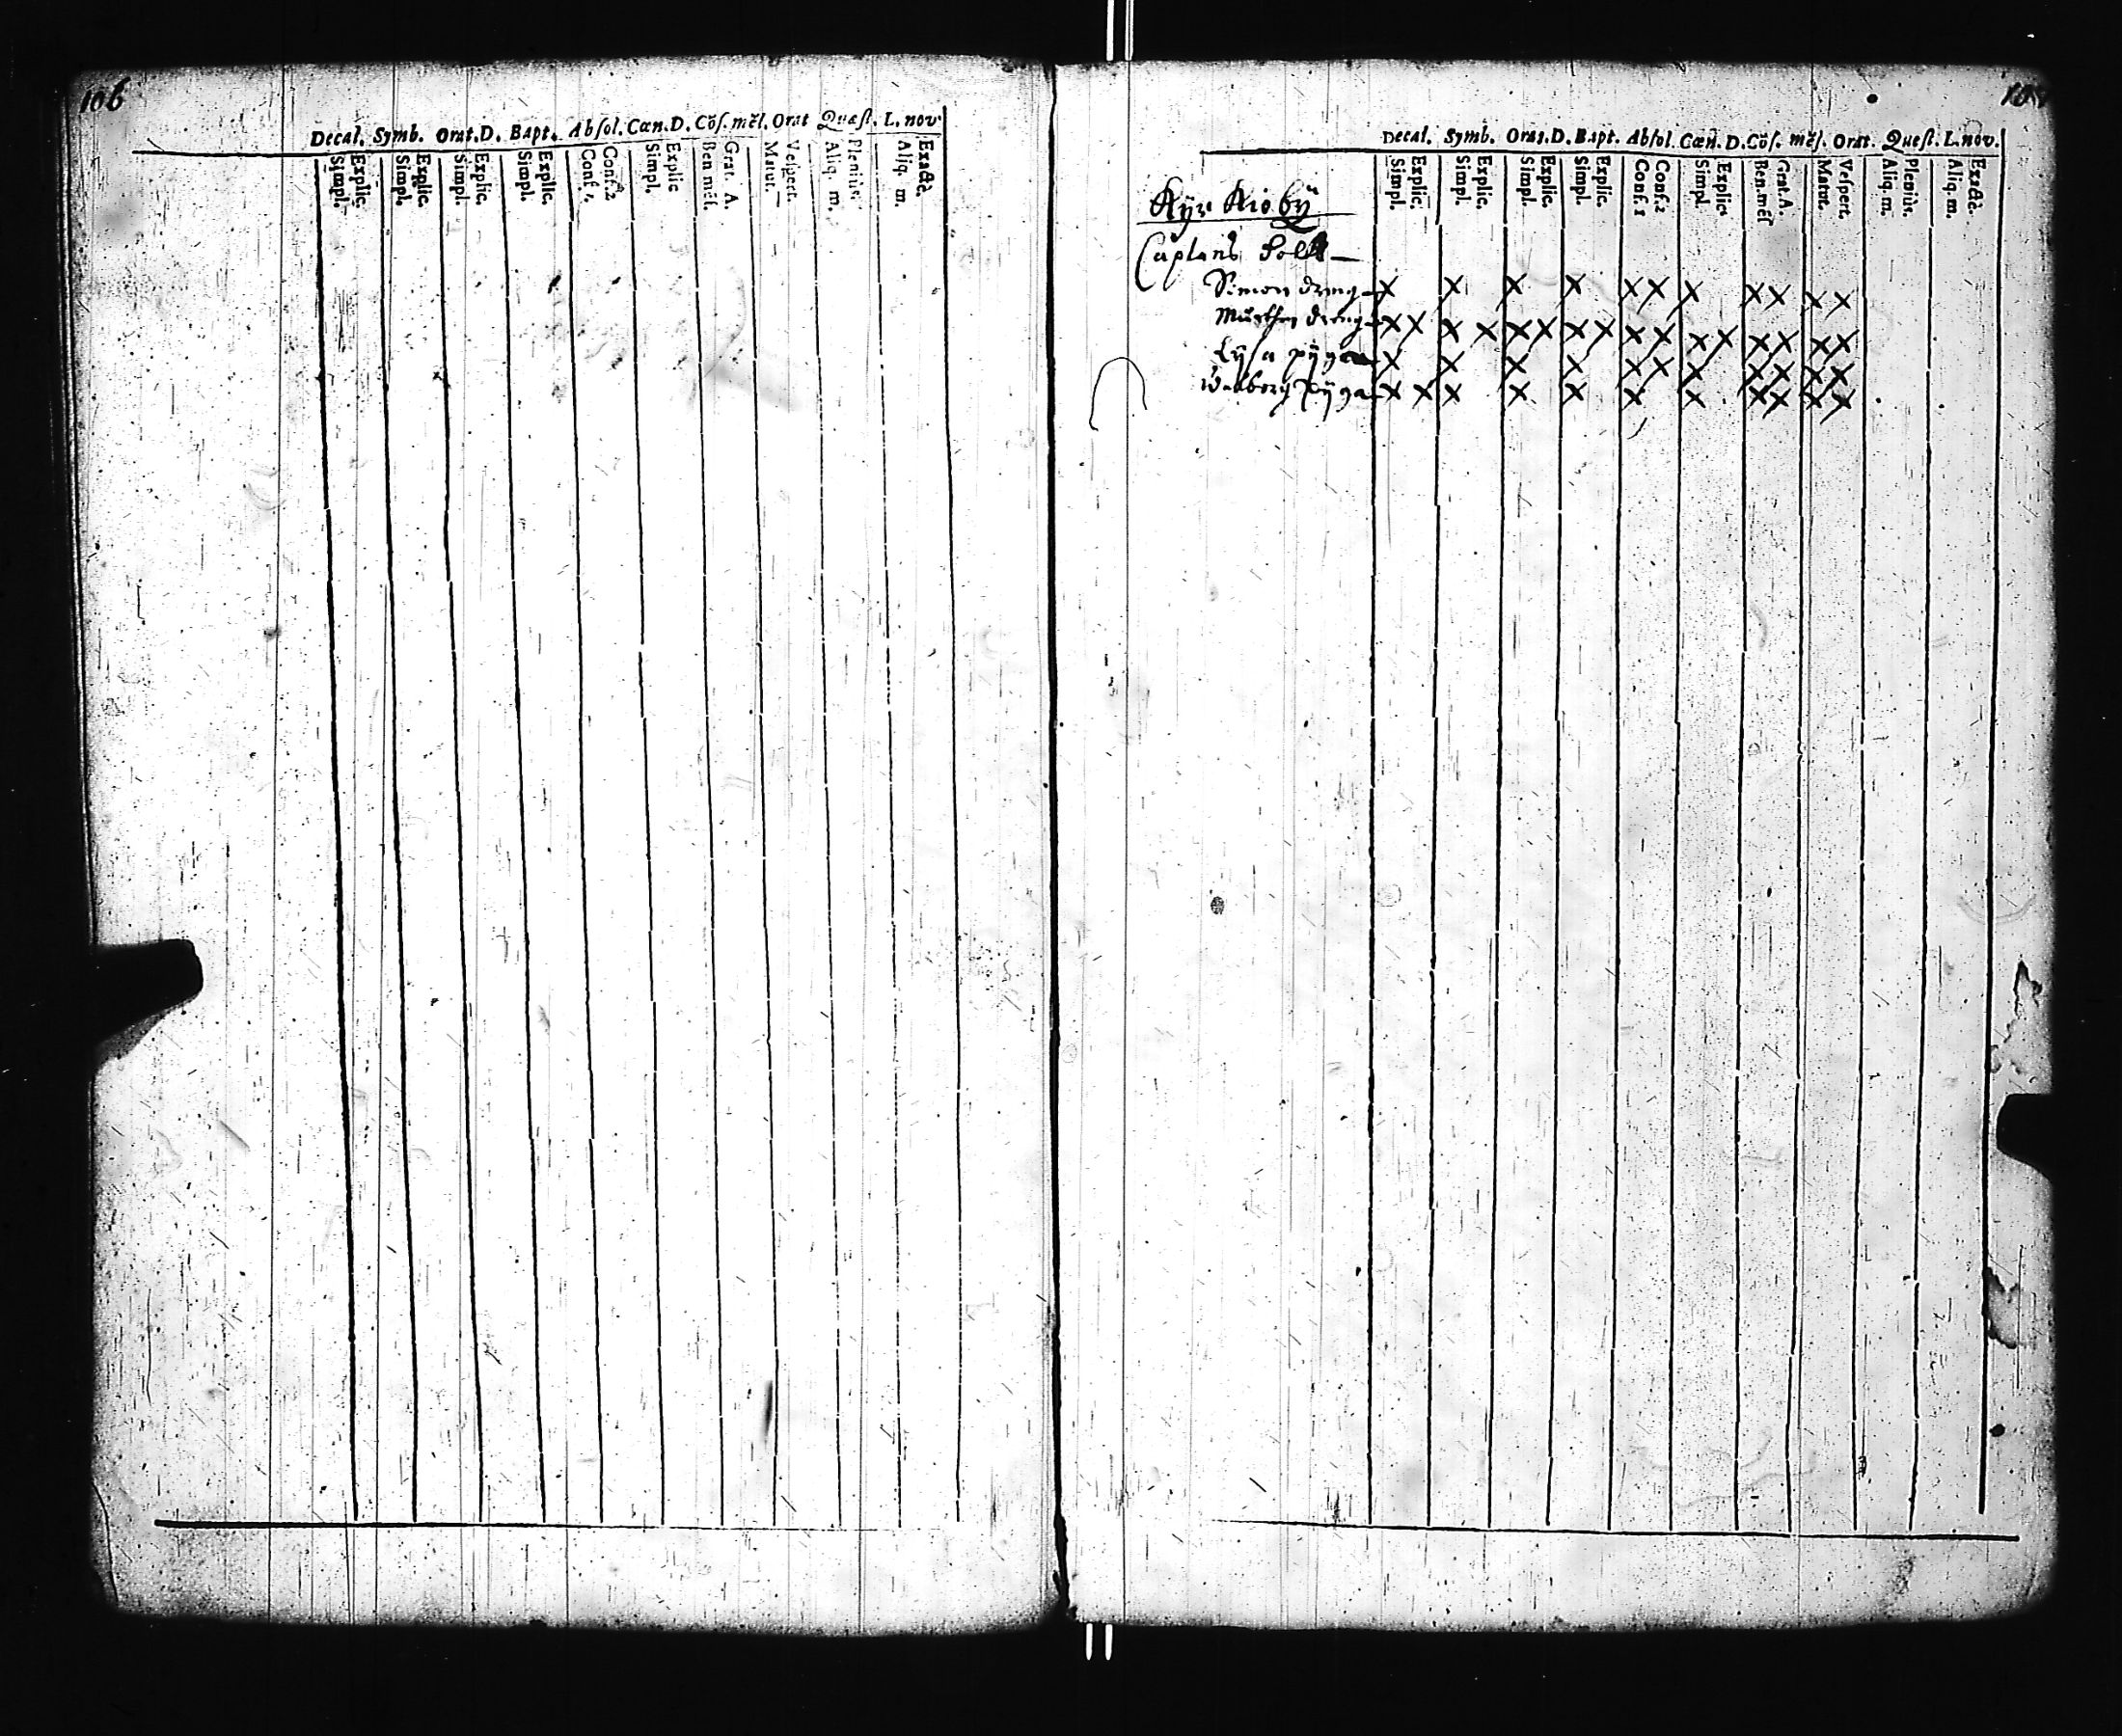 106
Decal. Symb. Orat.D. Bapt. Absol. Cœn.D. Cōf. mēſ. Orat Quæſt. L. nov.
Simpl. Explic. Simpl. Explic. Simpl. Explic. Simpl. Explic. Conf 1. Conf. 2 Simpl. Explic Ben mēſ. Grat. A. Matut. Veſpert. Aliq. m. Pleniùs. Aliq. m. Exactè.
Decal. Symb. Orat.D. Bapt. Abſol. Cœn. D. Cōſ. mēſ. Orat. Quæſt. L. nov.
Simpl. Explic. Simpl. Explic. Simpl. Explic. Simpl. Explic. Conf. 1 Conf. 2 Simpl. Explic. Ben. mēſ Grat. A. Matut. Veſpert. Aliq. m. Pleniùs. Aliq. m. Exactè.
Kyrkioby
Caplans folk
Simon dreng x x x x x x x x x x x
dreng x x x x x x x x x x x x x x x x
Lysa pyga x x x x x x x x x x x
pyga x x x x x x x x x x x